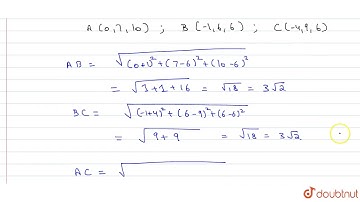 A (0,7,10) ; B (-1,6,6) ; C(-4,9,6)
AB = √(0+1)² + (7-6)² + (10-6)²
= √1+1+16 = √18 = 3√2
BC = √(-1+4)² + (6-9)² + (6-6)²
= √9+9 = √18 = 3√2
AC = √
doubtnut